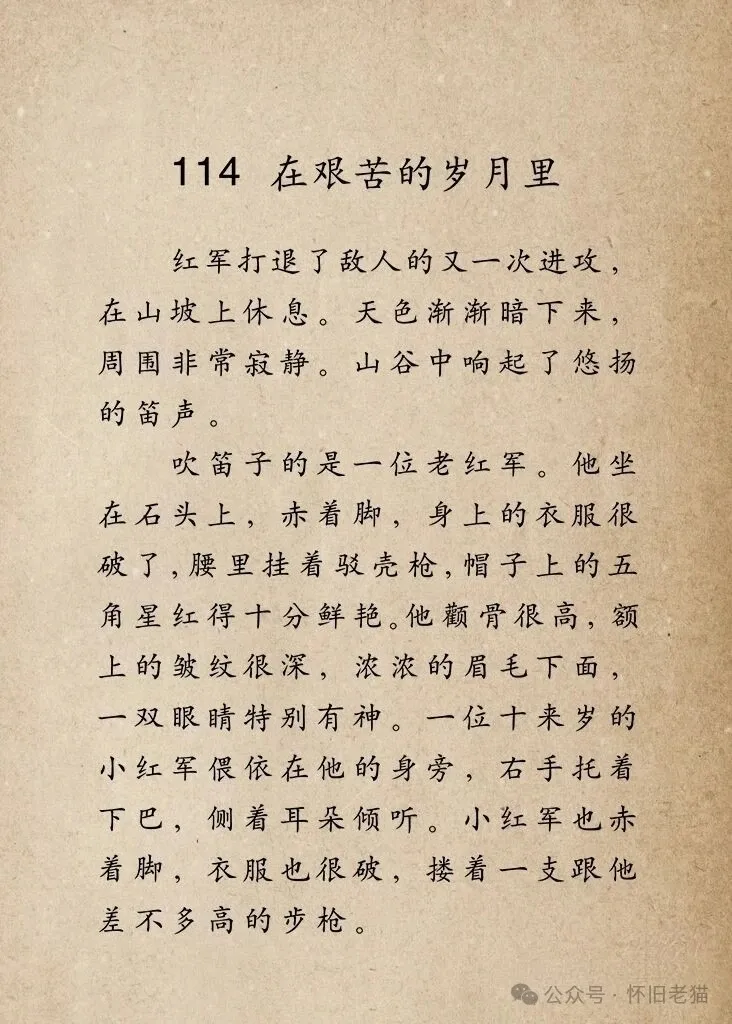 114 在艰苦的岁月里
红军打退了敌人的又一次进攻，
在山坡上休息。天色渐渐暗下来，
周围非常寂静。山谷中响起了悠扬
的笛声。
吹笛子的是一位老红军。他坐
在石头上，赤着脚，身上的衣服很
破了，腰里挂着驳壳枪，帽子上的五
角星红得十分鲜艳。他颧骨很高，额
上的皱纹很深，浓浓的眉毛下面，
一双眼睛特别有神。一位十来岁的
小红军偎依在他的身旁，右手托着
下巴，侧着耳朵倾听。小红军也赤
着脚，衣服也很破，搂着一支跟他
差不多高的步枪。
公众号·怀旧老猫